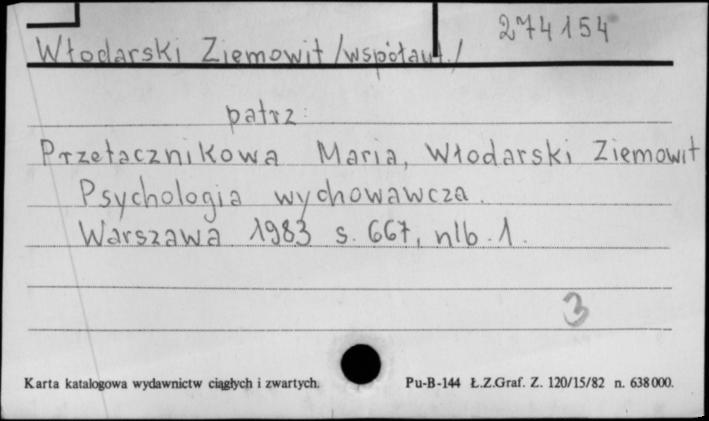 274154
Włodarski Ziemowit /współaut./
patrz:
Przetacznikowa Maria, Włodarski Ziemowit
Psychologia wychowawcza.
Warszawa 1983 s. 667, nlb. 1.
3
Karta katalogowa wydawnictw ciągłych i zwartych. Pu-B-144 Ł.Z.Graf. Z. 120/15/82 n. 638000.